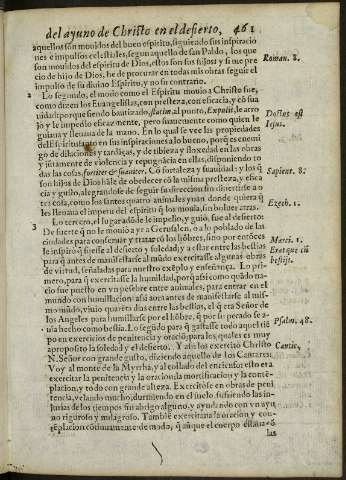 del ayuno de Christo en el desierto, 461
aquellos son mouidos del buen espiritu, siguiendo sus inspiracio
nes e impulsos celestiales, segun aquello de san Pablo, los que
son mouidos del espiritu de Dios, estos son sus hijos: y si me pre
cio de hijo de Dios, he de procurar en todas mis obras seguir el
impulso de su diuino Espiritu, y no su contrario.
Roman. 8.
2 Lo segundo, el modo como el Espiritu mouio a Christo fue,
como dizen los Euangelistas, con presteza, con eficacia, y cō sua
uidad: porque siendo bautizado, statim, al punto, Expulit, le arro
jò y le impelio eficazmente, pero suauemente como quien le
guiaua y lleuaua de la mano. En lo qual se vee las propiedades
del Espiritu santo en sus inspiraciones a lo bueno, porq̃ es enemi
go de dilaciones y tardāças, y de tibieza y floxedad en las obras
y juntamente de violencia y repugnācia en ellas, disponiendo to
das las cosas, fortiter & suauiter. Cō fortaleza y suauidad: y los q̃
son hijos de Dios hā de obedecer cō la misma presteza, y efica
cia y gusto, alegrandose de seguir su direccion sin diuertirse a o
tra cosa, como los santos quatro animales yuan donde quiera q̃
les lleuaua el impetu del espiritu q̃ los mouia, sin boluer atras.
Doctus est
Iesus.
Sapient. 8.
Ezech. 1.
3 Lo tercero, el lugar adōde le impelio, y guiò, fue al desierto:
De suerte q̃ no le mouio a yr a Gerusalen, o a lo poblado de las
ciudades para conuersar y tratar cō los hōbres, sino por entōces
le inspirò q̃ fuesse al desierto y soledad, y a estar entre las bestias
para q̃ antes de manifestarse al mūdo exercitasse algunas obras
de virtud, señaladas para nuestro exeplo y enseñança. Lo pri-
mero, para q̃ exercitasse la humildad, porq̃ assi como quādo na
cio fue puesto en vn pesebre entre animales, para entrar en el
mundo con humillacion: assi aora antes de manifestarse al mis-
mo mūdo, viuio quarenta dias entre las bestias, el q̃ era Señor de
los Angeles para humillarse por el hōbre, q̃ por su pecado se a-
uia hecho como bestia. Lo segūdo para q̃ gastasse todo aquel tiē
po en exercicios de penitencia y oraciō; para los quales es muy
aproposito la soledad y el desierto. Y assi los exercitò Christo
N. Señor con grande gusto, diziendo aquello de los Cantares:
Voy al monte de la Myrrha, y al collado del enciēso: esto es a
exercitar la penitencia y la oracion: la mortificacion y la contē-
placion, y todo con grande alteza. Exercitòse en obras de peni
tencia, velando mucho, durmiendo en el suelo, sufriendo las in-
iurias de los tiempos sin abrigo alguno, y ayudando con vn ayu
no riguroso y milagroso. Tambiē exercitaua la oracion y con-
tēplacion cōtinuamente de modo, q̃ aunque el cuerpo estaua ē
las
Marci. 1.
Erat que cū
bestijs.
Psalm. 48.
Cantic.